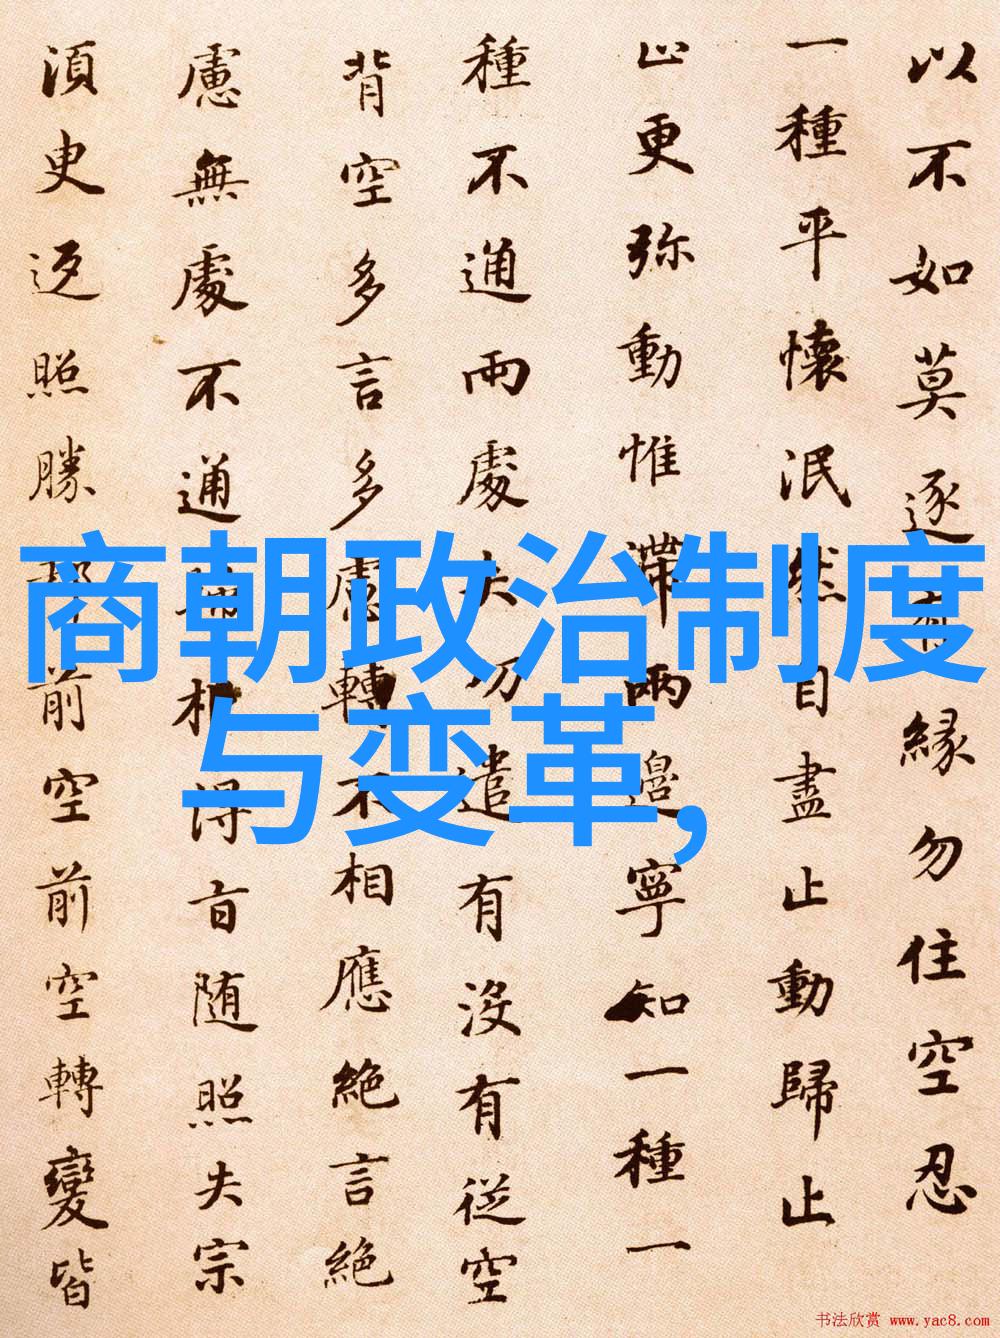 商朝政治制度
与变革,
以不如莫逐有緣勿住空忍
一種平懷泯然自盡止動歸止
止更弥動惟滯兩邊寧知一種一
種不通兩處失功遣有没有從空
背空多言多慮轉不相應絶言絶
慮無處不通歸根得旨随照失宗
湏臾返照勝却前空前空轉變皆
书法欣赏 www.yac8.com